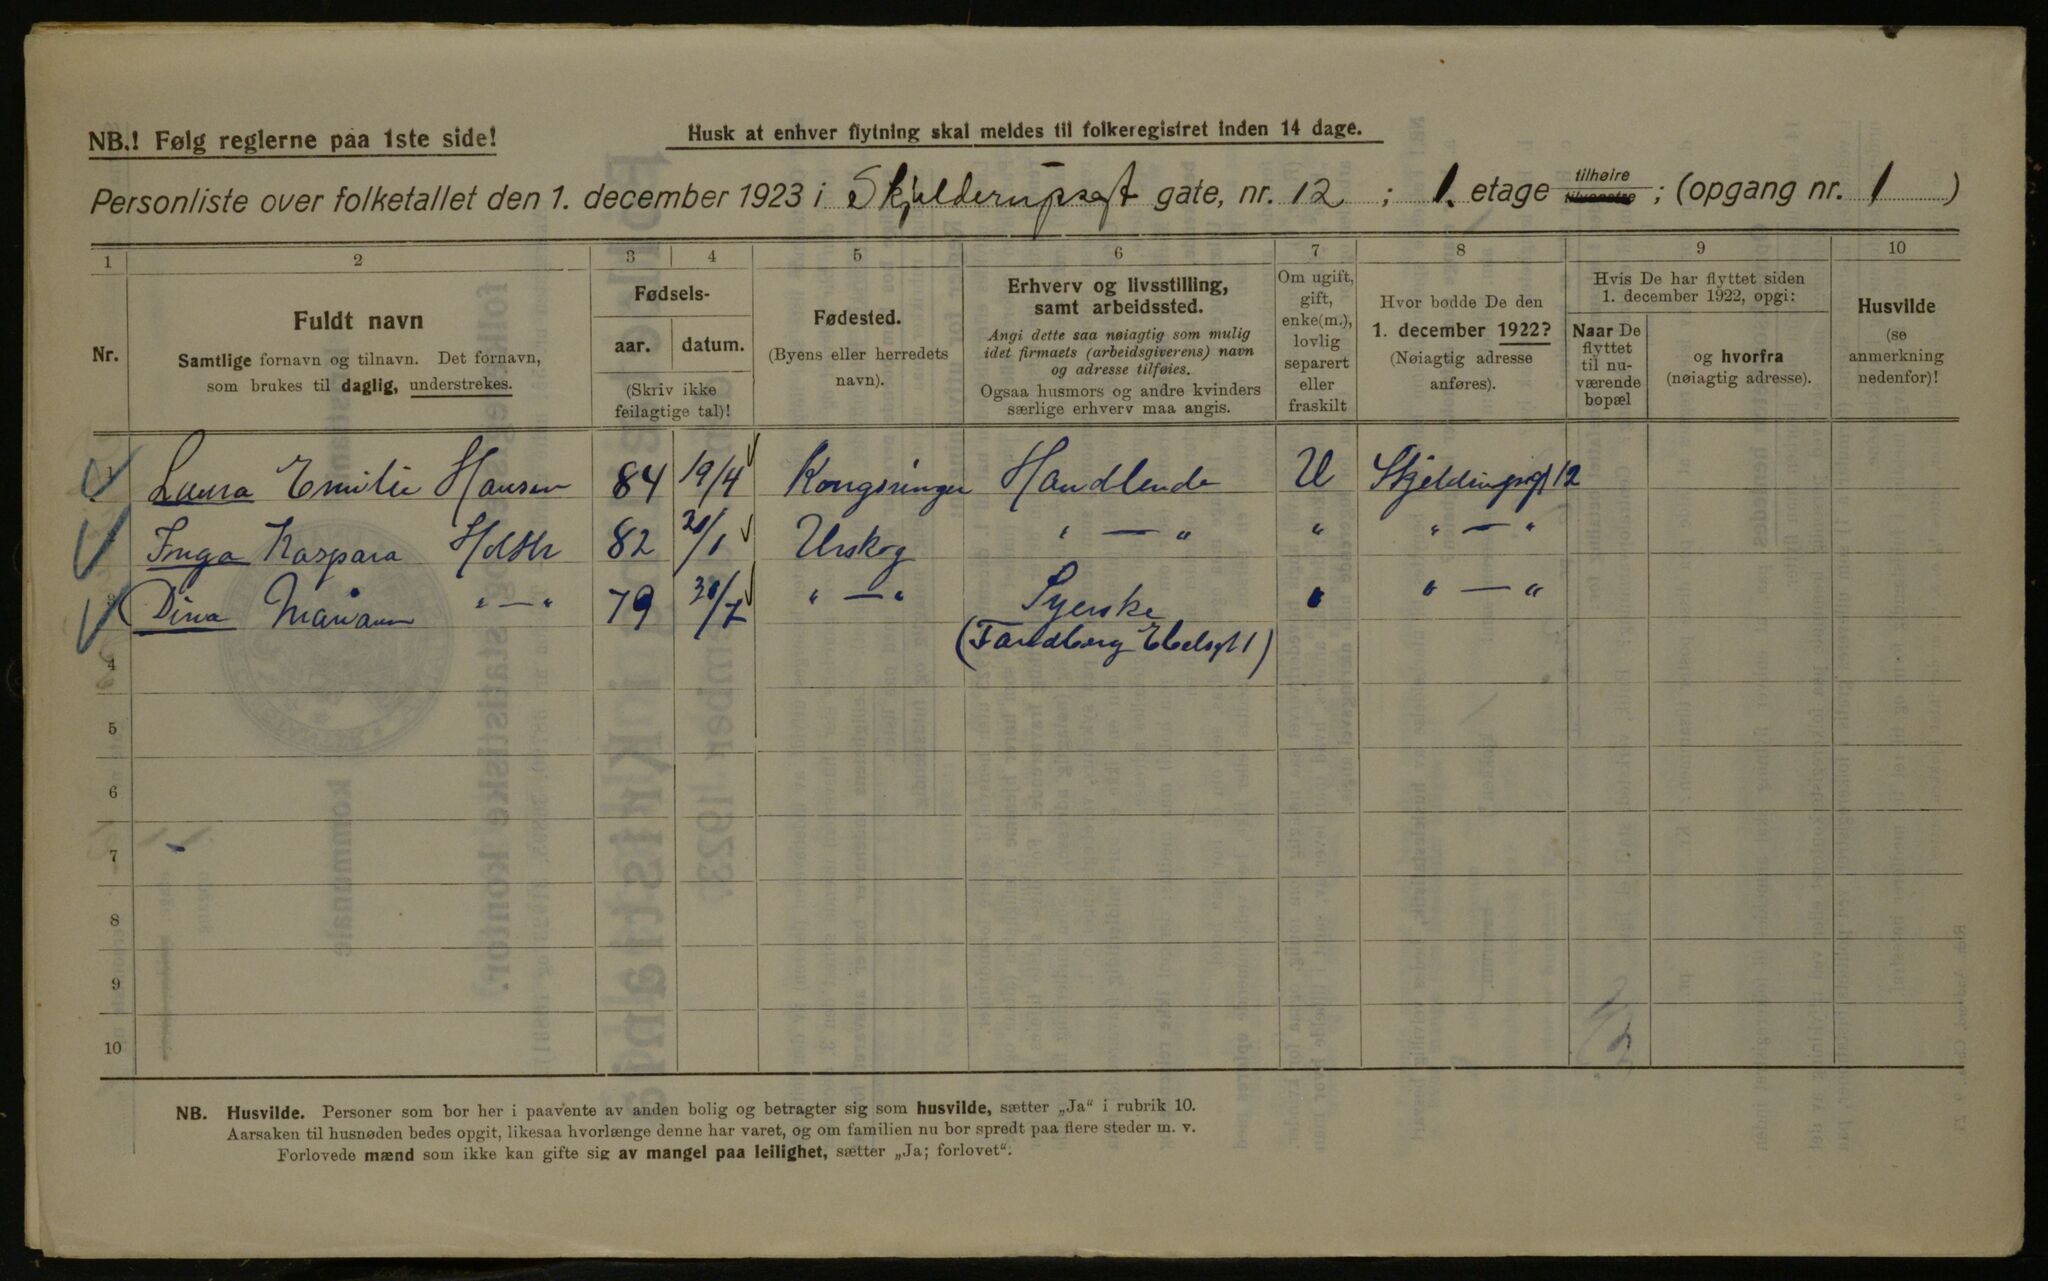 NB.! Følg reglerne paa 1ste side!
Husk at enhver flytning skal meldes til folkeregistret inden 14 dage.
Personliste over folketallet den 1. december 1923 i Skjelderupsgt gate, nr. 12 ; 1. etage tilhøire tilvenstre ; (opgang nr. 1 )
1 2 3 4 5 6 7 8 9 10
Nr.
Fuldt navn
Samtlige fornavn og tilnavn. Det fornavn,
som brukes til daglig, understrekes.
Fødsels-
aar. datum.
(Skriv ikke
feilagtige tal)!
Fødested.
(Byens eller herredets
navn).
Erhverv og livsstilling,
samt arbeidssted.
Angi dette saa nøiagtig som mulig
idet firmaets (arbeidsgiverens) navn
og adresse tilføies.
Ogsaa husmors og andre kvinders
særlige erhverv maa angis.
Om ugift,
gift,
enke(m.),
lovlig
separert
eller
fraskilt
Hvor bodde De den
1. december 1922?
(Nøiagtig adresse
anføres).
Hvis De har flyttet siden
1. december 1922, opgi:
Naar De
flyttet
til nu-
værende
bopæl
og hvorfra
(nøiagtig adresse).
Husvilde
(se
anmerkning
nedenfor)!
Laura Emilie Hansen 84 19/4 Kongsvinger Handlende U 12
Inga Kaspara 82 /1 Urskog " — " " " — "
3 Dina " — " 79 " — " Syerske " " — "
4
5
6
7
8
9
10
NB. Husvilde. Personer som bor her i paavente av anden bolig og betragter sig som husvilde, sætter „Ja“ i rubrik 10.
Aarsaken til husnøden bedes opgit, likesaa hvorlænge denne har varet, og om familien nu bor spredt paa flere steder m. v.
Forlovede mænd som ikke kan gifte sig av mangel paa leilighet, sætter „Ja; forlovet“.